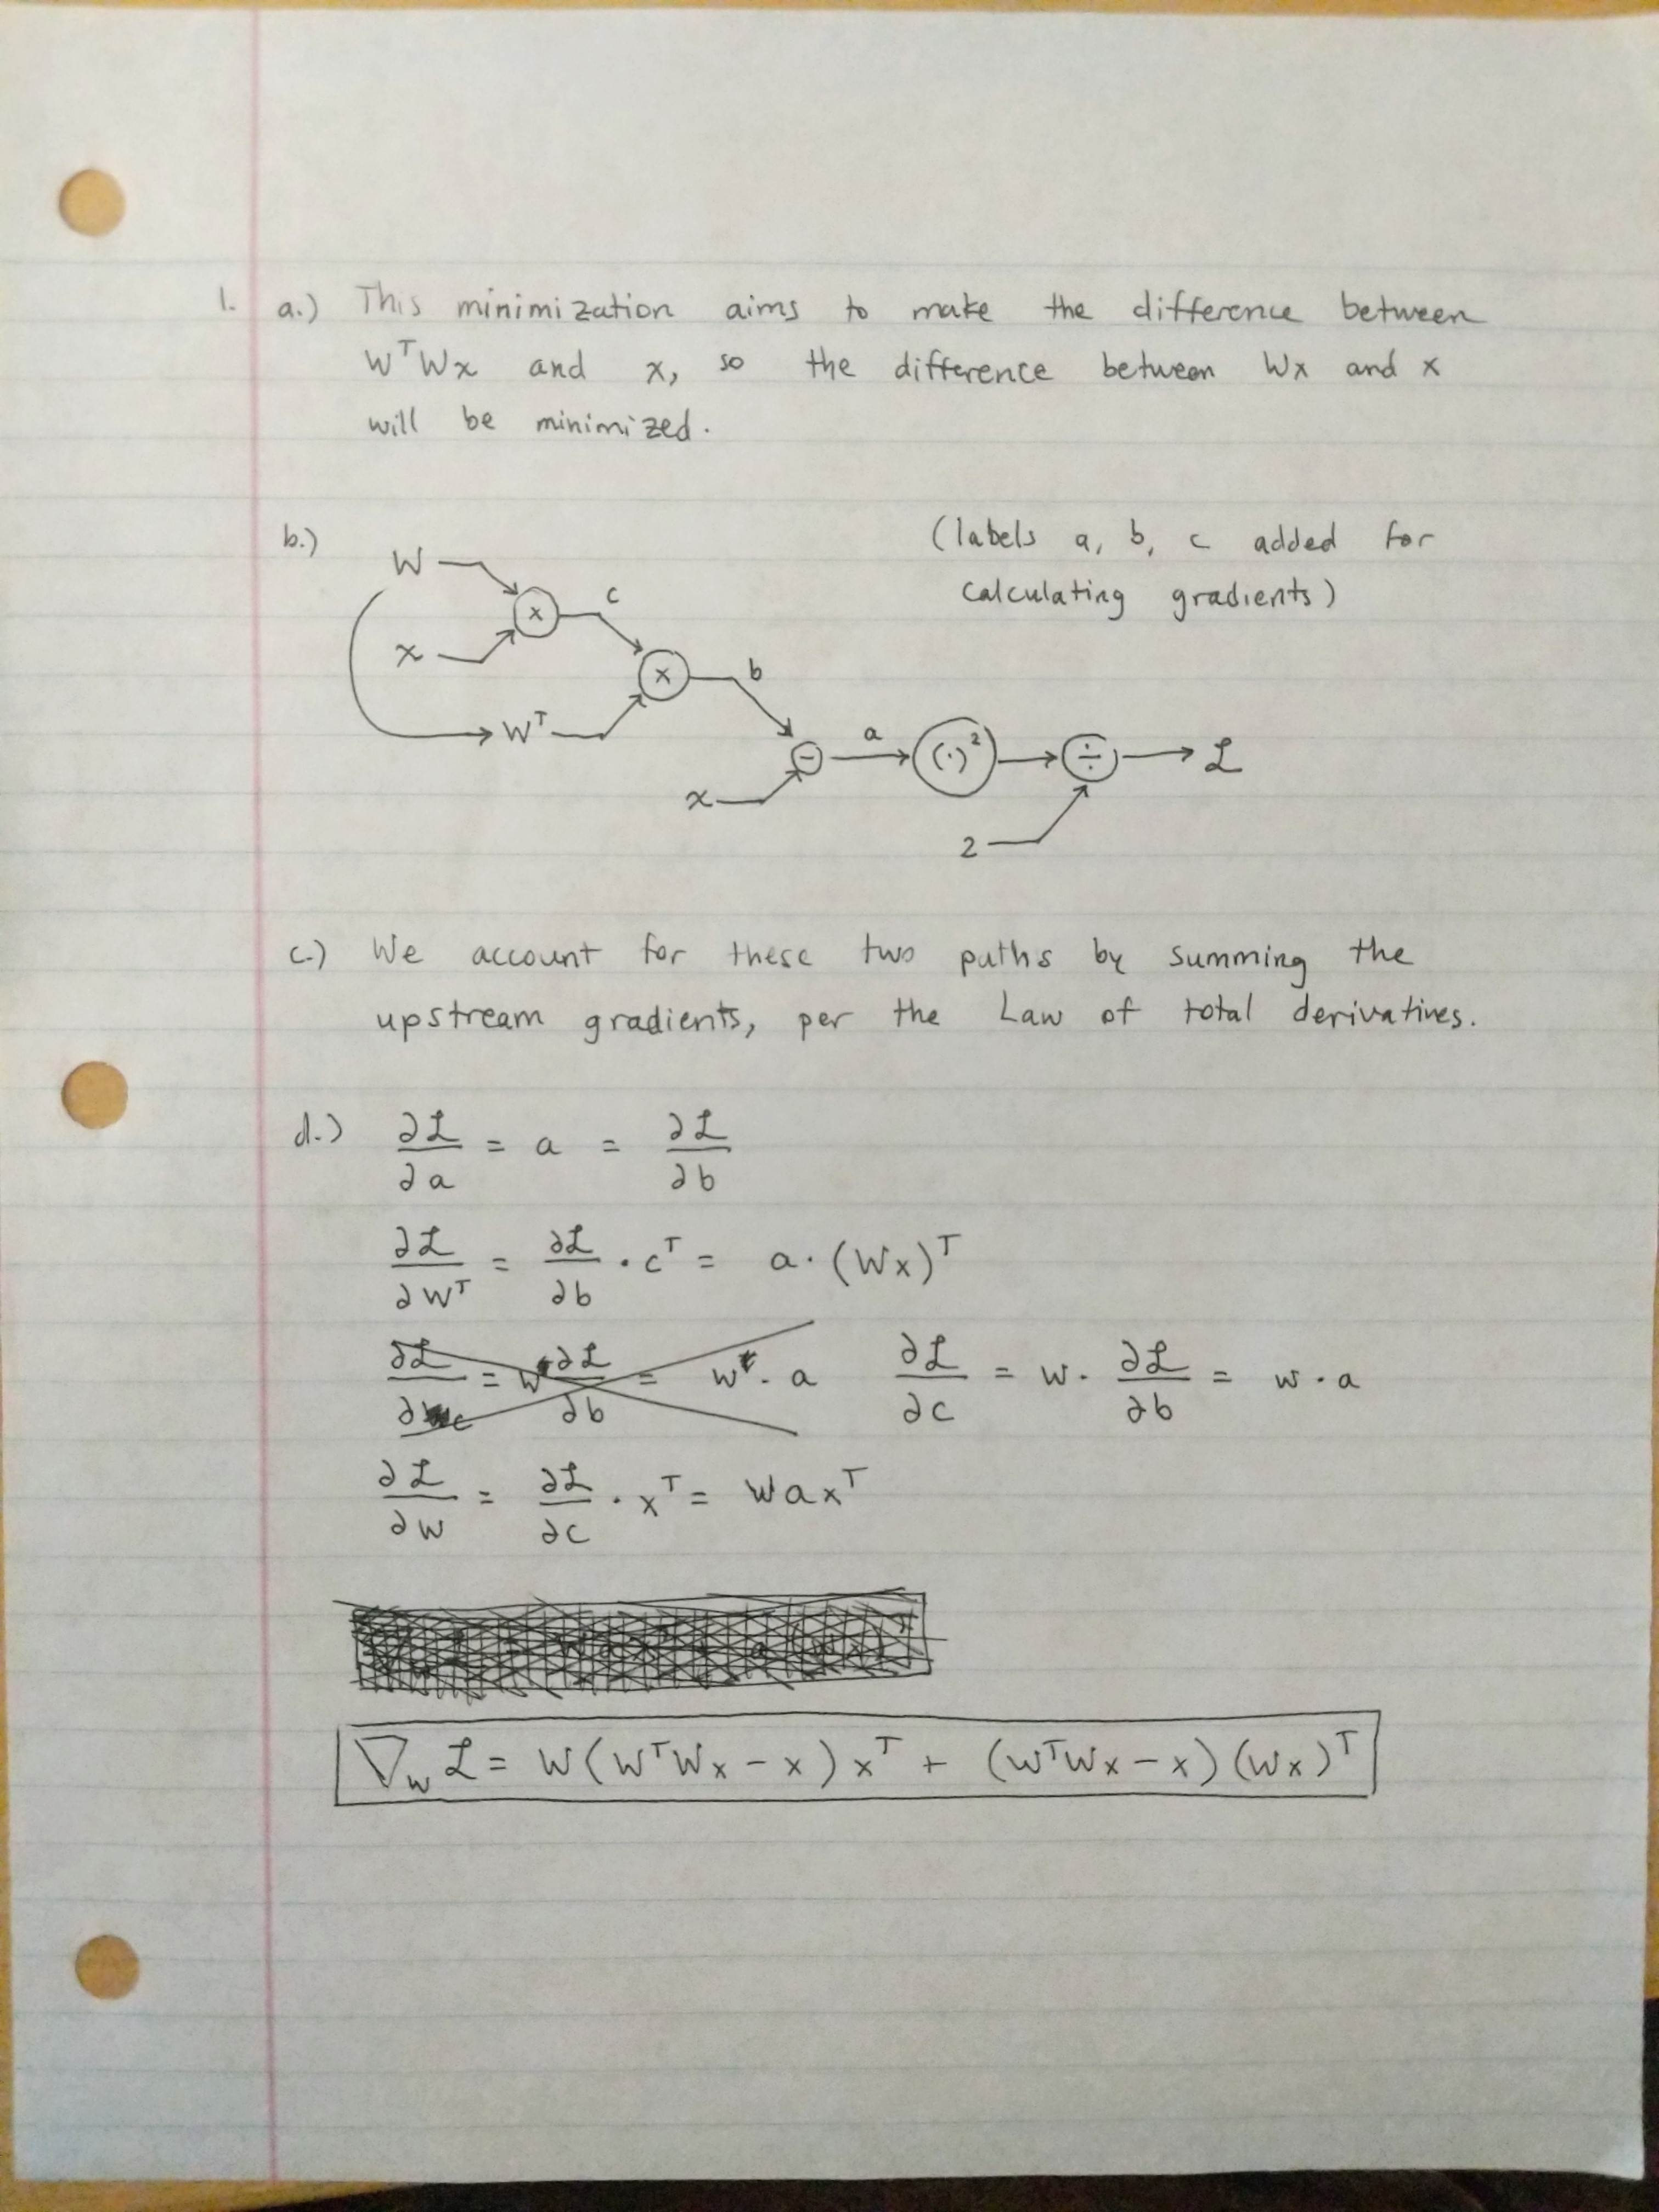 1. a.) This minimization aims to make the difference between
WᵀWx and x, so the difference between Wx and x
will be minimized.
b.) (labels a, b, c added for
calculating gradients)
W
x
×
c
Wᵀ
×
b
x
−
a
(·)²
÷
2
ℒ
c.) We account for these two paths by summing the
upstream gradients, per the Law of total derivatives.
d.) ∂ℒ/∂a = a = ∂ℒ/∂b
∂ℒ/∂Wᵀ = ∂ℒ/∂b · cᵀ = a · (Wx)ᵀ
∂ℒ/∂c = W · ∂ℒ/∂b = W · a
∂ℒ/∂W = ∂ℒ/∂c · xᵀ = Waxᵀ
∇_W ℒ = W(WᵀWx − x)xᵀ + (WᵀWx − x)(Wx)ᵀ